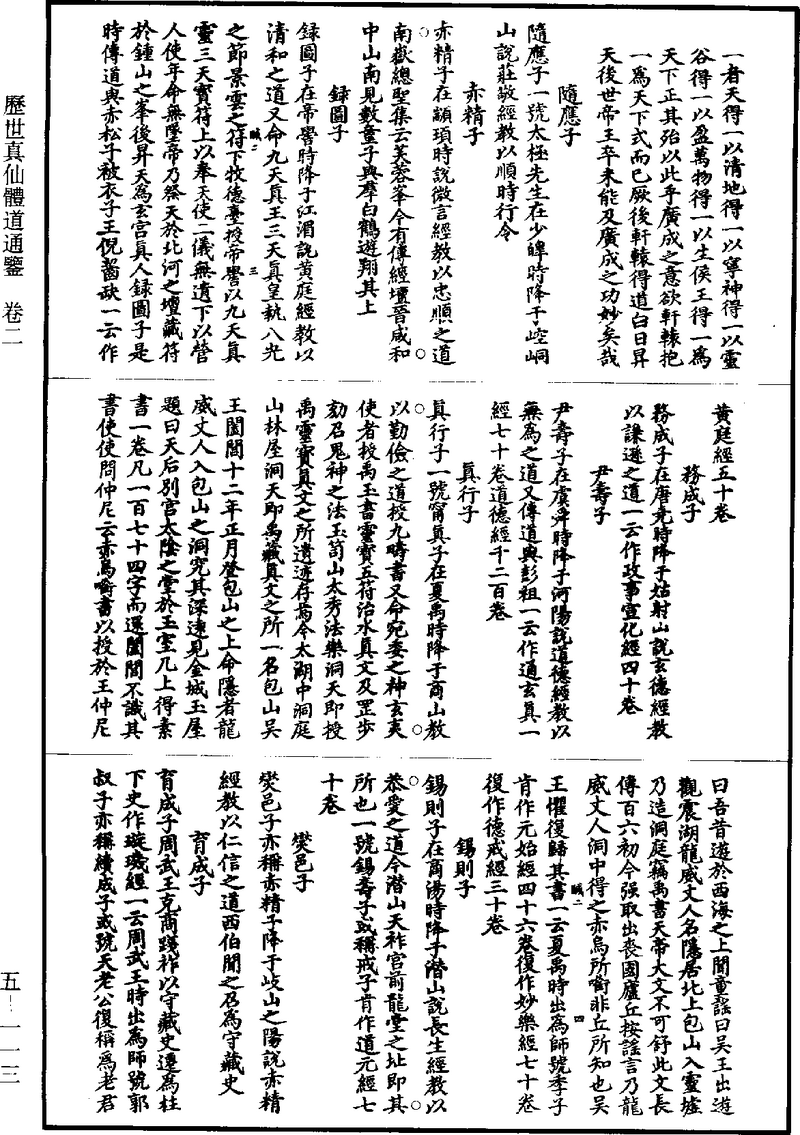 歷世真仙體道通鑒　卷二
一者天得一以清地得一以寧神得一以靈
谷得一以盈萬物得一以生侯王得一為
天下正其殆以此乎廣成之意欲軒轅抱
一為天下式而已厥後軒轅得道白日昇
天後世帝王卒未能及廣成之功妙矣哉
隨應子
隨應子一號太極先生在少皞時降于崆峒
山說莊敬經教以順時行令
赤精子
赤精子在顓頊時說微言經教以忠順之道
南嶽總聖集云芙蓉峯今有傳經壇晉咸和
中山南見數童子與羣白鶴遊翔其上
録圖子
録圖子在帝嚳時降于江湄說黄庭經教以
清和之道又命九天真王三天真皇執八光
之節景雲之符下牧德臺授帝嚳以九天真
靈三天寶符上以奉天使二儀無遺下以營
人使年命無墜帝乃祭天於北河之壇藏符
於鍾山之峯後昇天為玄宫真人録圖子是
時傳道與赤松子被衣子王倪齧缺一云作
黄庭經五十卷
務成子
務成子在唐堯時降于姑射山說玄德經教
以謙遜之道一云作政事宣化經四十卷
尹壽子
尹壽子在虞舜時降于河陽說道德經教以
無為之道又傳道與彭祖一云作通玄真一
經七十卷道德經千二百卷
真行子
真行子一號甯真子在夏禹時降于商山教
以勤儉之道授九疇書又命宛委之神玄夷
使者授禹玉書靈寶五符治水真文及罡步
劾召鬼神之法玉笥山太秀法樂洞天即授
禹靈寶真文之所遺迹存焉今太湖中洞庭
山林屋洞天即禹藏真文之所一名包山吳
王闔閭十二年正月登包山之上命隱者龍
威丈人入包山之洞究其深遠見金城玉屋
題曰天后別宫太陰之堂於玉室几上得素
書一卷凡一百七十四字而還闔閭不識其
書使使問仲尼云赤烏啣書以授於王仲尼
曰吾昔遊於西海之上聞童謡曰吳王出遊
觀震湖龍威丈人名隱居北上包山入靈墟
乃造洞庭竊禹書天帝大文不可舒此文長
傳百六初今强取出喪國廬丘按謡言乃龍
威丈人洞中得之赤烏所啣非丘所知也吳
王懼復歸其書一云夏禹時出為師號季子
肯作元始經四十六卷復作妙樂經七十卷
復作德戒經三十卷
錫則子
錫則子在商湯時降于潛山說長生經教以
恭愛之道今潛山天祚宫前龍堂之址即其
所也一號錫壽子或稱戒子肯作道元經七
十卷
爕邑子
爕邑子亦稱赤精子降于岐山之陽說赤精
經教以仁信之道西伯聞之召為守藏史
育成子
育成子周武王克商踐祚以守藏史遷為柱
下史作璇璣經一云周武王時出為師號郭
叔子亦稱續成子或號天老公復稱為老君
五—一一三